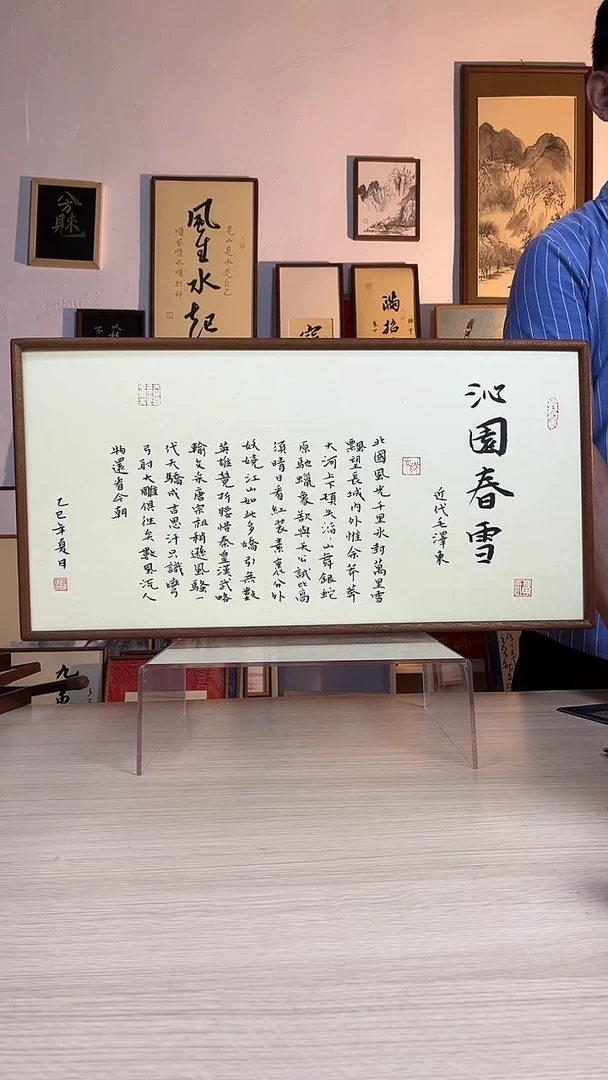 風生水起
見山是水見自己
順風順水順財神
滿招
沁園春雪
近代毛澤東
北國風光千里氷封萬里雪
飄望長城内外惟余莽莽
大河上下頓失滔ヽ山舞銀蛇
原馳蠟象欲與天公試比高
須晴日看紅裝素裹分外
妖嬈江山如此多嬌引無數
英雄競折腰惜秦皇漢武略
輸文采唐宗祖稍遜風騷一
代天驕成吉思汗只識彎
弓射大雕俱往矣數風流人
物還看今朝
乙巳年夏月
九萬